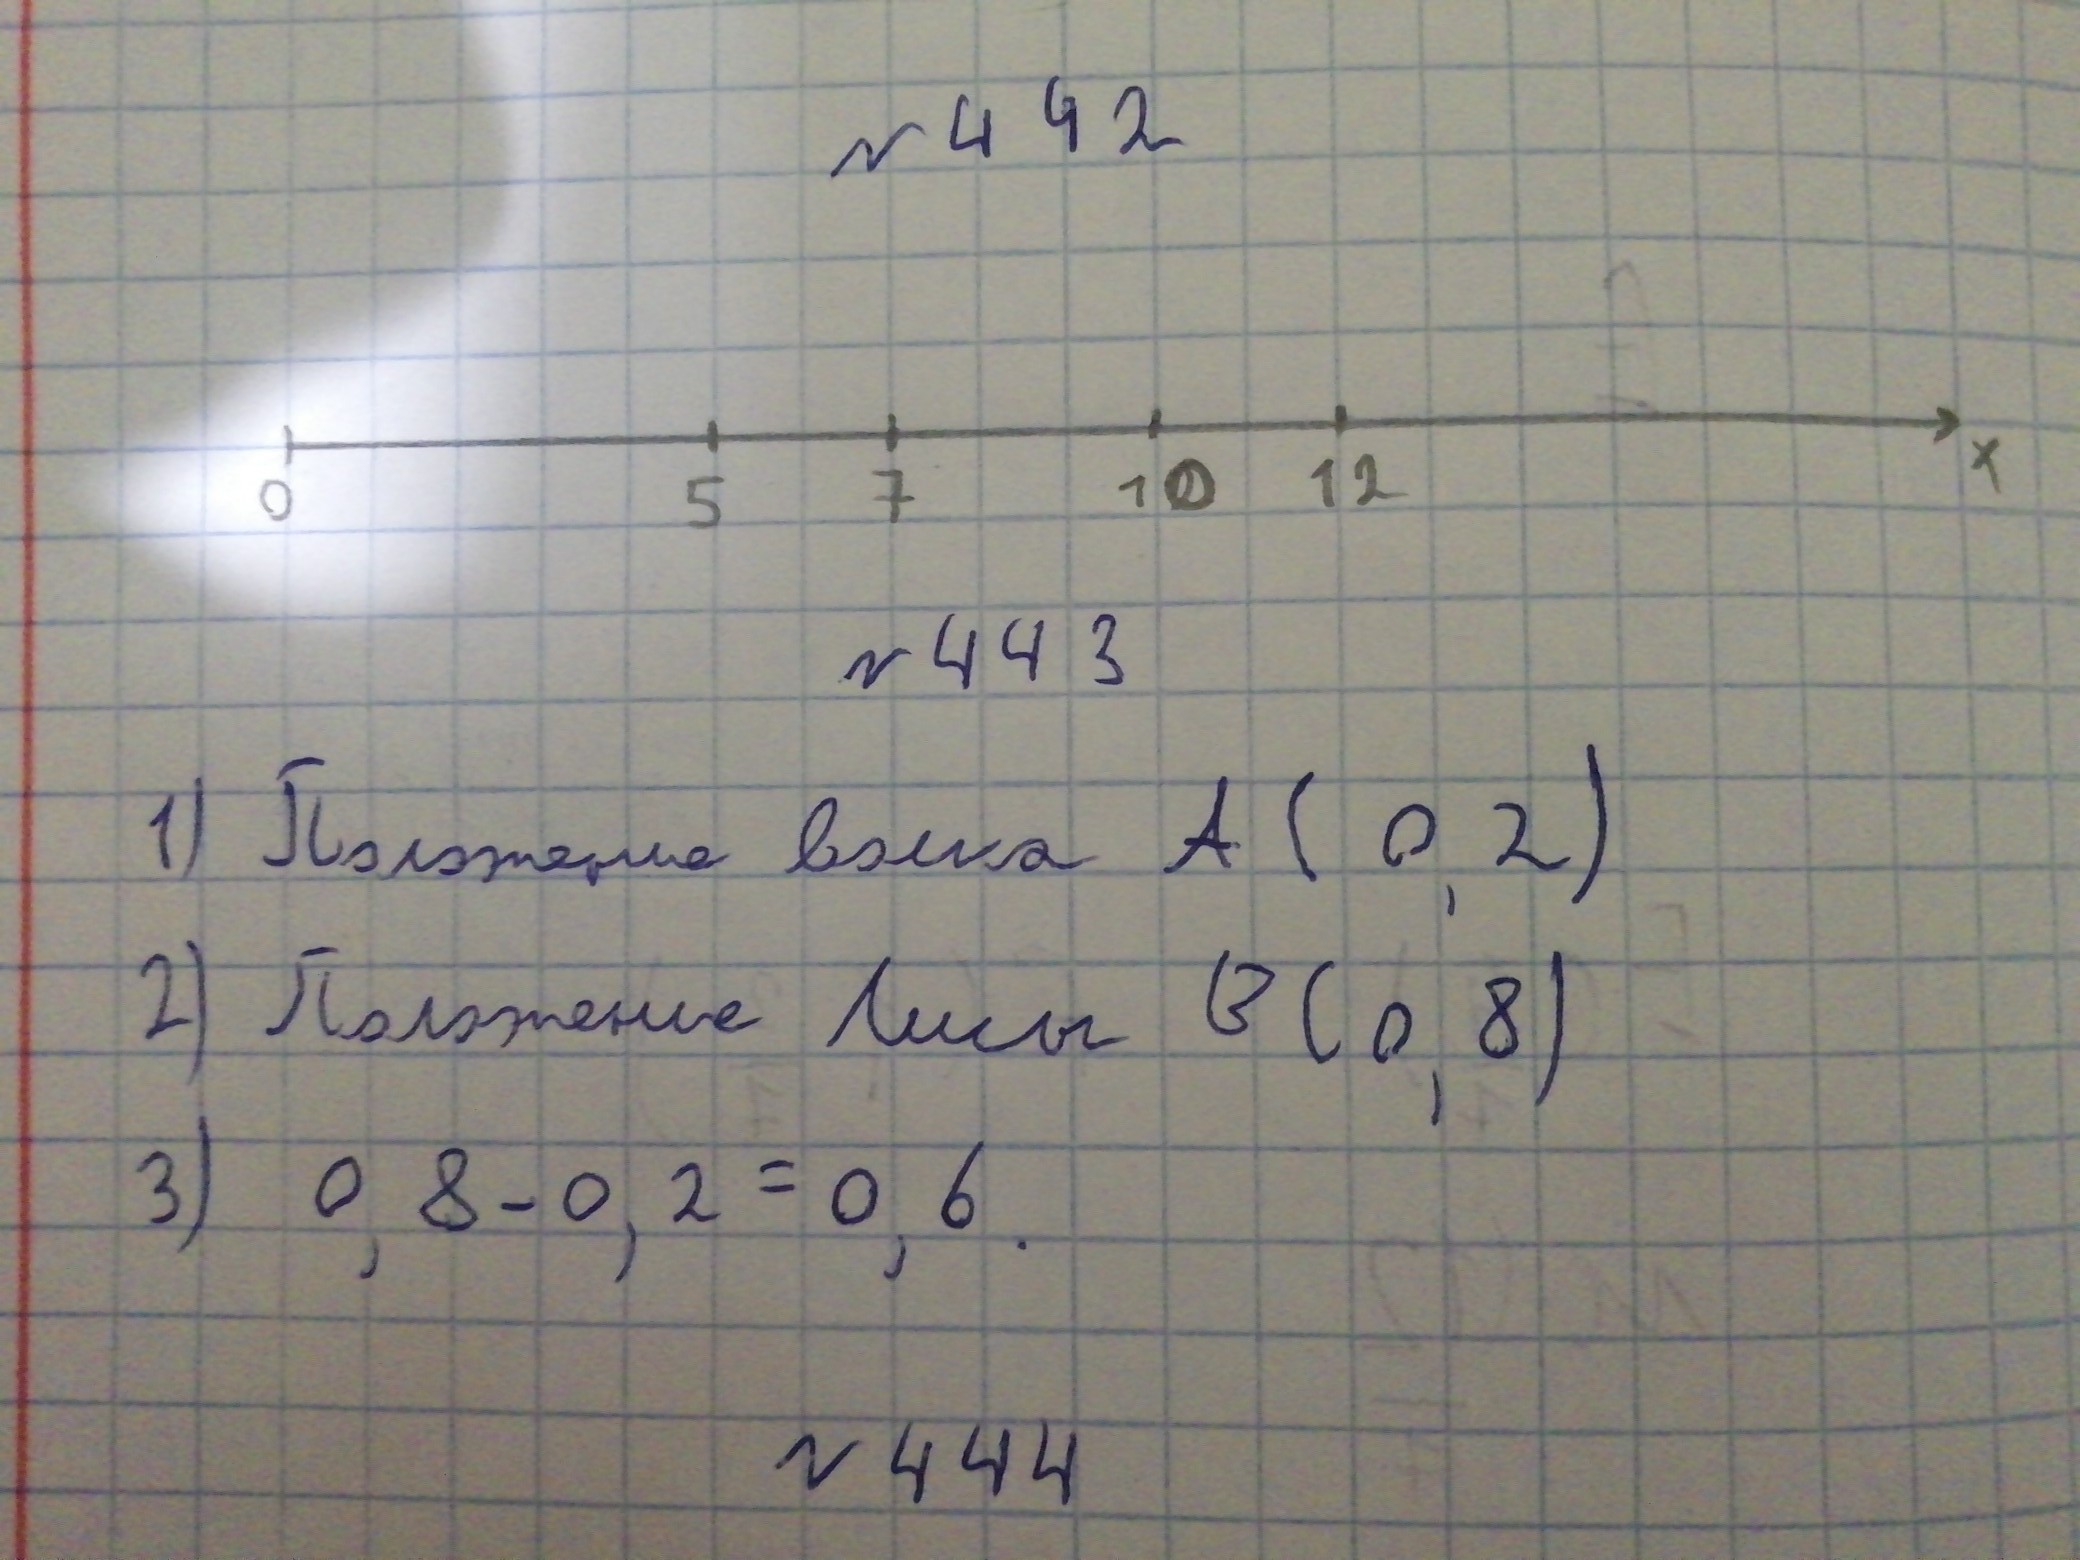 № 442
0 5 7 10 12 x
№ 443
1) Положение волка А(0,2)
2) Положение лисы В(0,8)
3) 0,8-0,2=0,6.
№ 444